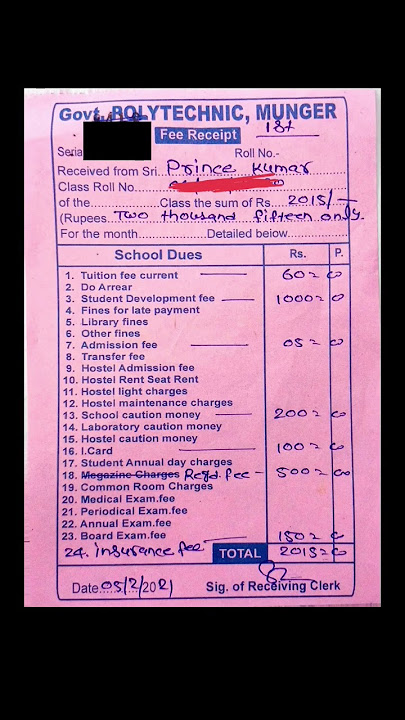 Govt. POLYTECHNIC, MUNGER
Fee Receipt 1st
Seria Roll No.-
Received from Sri. Prince Kumar
Class Roll No.
of the Class the sum of Rs. 2015/-
(Rupees Two thousand fifteen only.
For the month Detailed below
School Dues Rs. P.
1. Tuition fee current 60 = 00
2. Do Arrear
3. Student Development fee 1000 = 0
4. Fines for late payment
5. Library fines
6. Other fines
7. Admission fee 05 = 00
8. Transfer fee
9. Hostel Admission fee
10. Hostel Rent Seat Rent
11. Hostel light charges
12. Hostel maintenance charges
13. School caution money 200 = 00
14. Laboratory caution money
15. Hostel caution money
16. I.Card 100 = 00
17. Student Annual day charges
18. Megazine Charges Regd. fee - 500 = 00
19. Common Room Charges
20. Medical Exam.fee
21. Periodical Exam.fee
22. Annual Exam.fee
23. Board Exam.fee 150 = 0
24. insurance fee TOTAL 2015 = 00
Date 05/2/2021 Sig. of Receiving Clerk